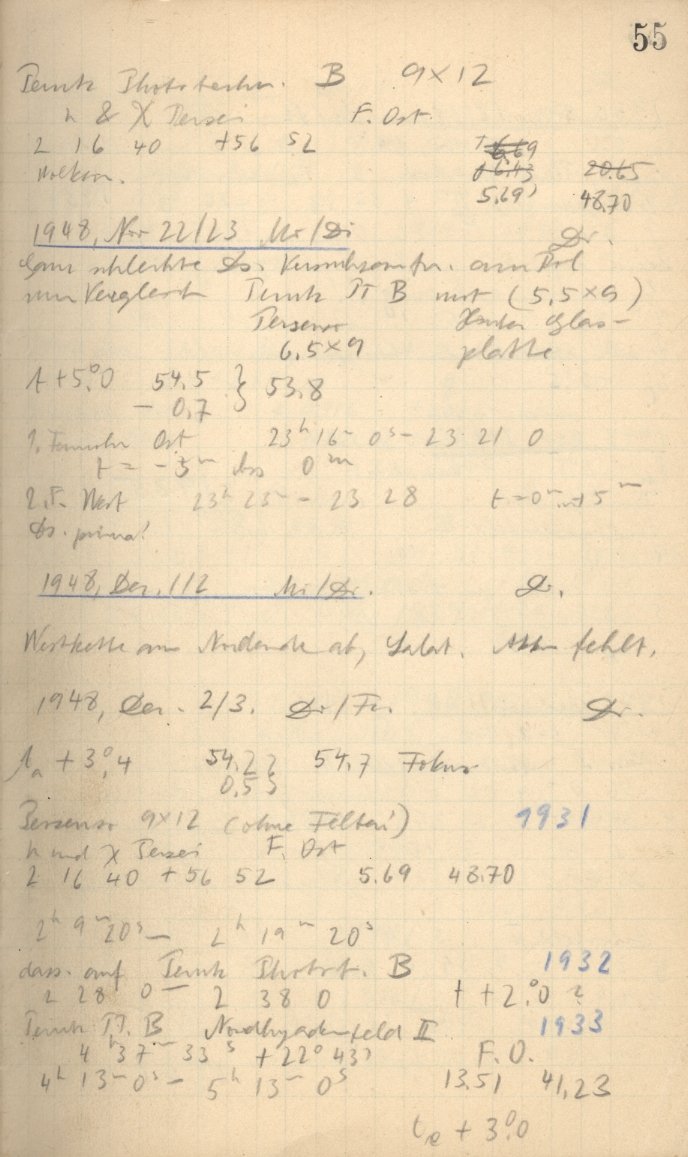 55
Perutz Phototechn. B 9x12
h & χ Persei F. Ost
2 16 40 +56 52
Wolken. 20.65
5.69 48.70
1948, Nov 22/23 Mo/Di Dr.
Ganz schlechte Ds. am Pol
zum Vergleich Perutz PT B mit (5,5x9)
Persenso Glas-
6.5x9 platte
t +5°.0 54.5 } 53.8
- 0.7
1. Fernrohr Ost 23h 16m 0s - 23 21 0
t = -5m bis 0m
2. F. West 23h 23m - 23 28 t = 0m +5m
Ds. prima!
1948, Dez. 1/2 Mi/Do. Dr.
Westkette am Nordende ab, fehlt.
1948, Dez. 2/3. Do/Fr. Dr.
+3°.4 54.2 } 54.7 Fokus
0.5
Persenso 9x12 (ohne Filter!) 1931
h und χ Persei F. Ost
2 16 40 +56 52 5.69 48.70
2h 9m 20s - 2h 19m 20s
dass. auf Perutz Photot. B 1932
2 28 0 - 2 38 0 t +2°.0 ?
Perutz PT. B Nordhyadenfeld II 1933
4h 37m 33s +22° 43' F.O.
4h 13m 0s - 5h 13m 0s 13.51 41,23
+ 3°.0